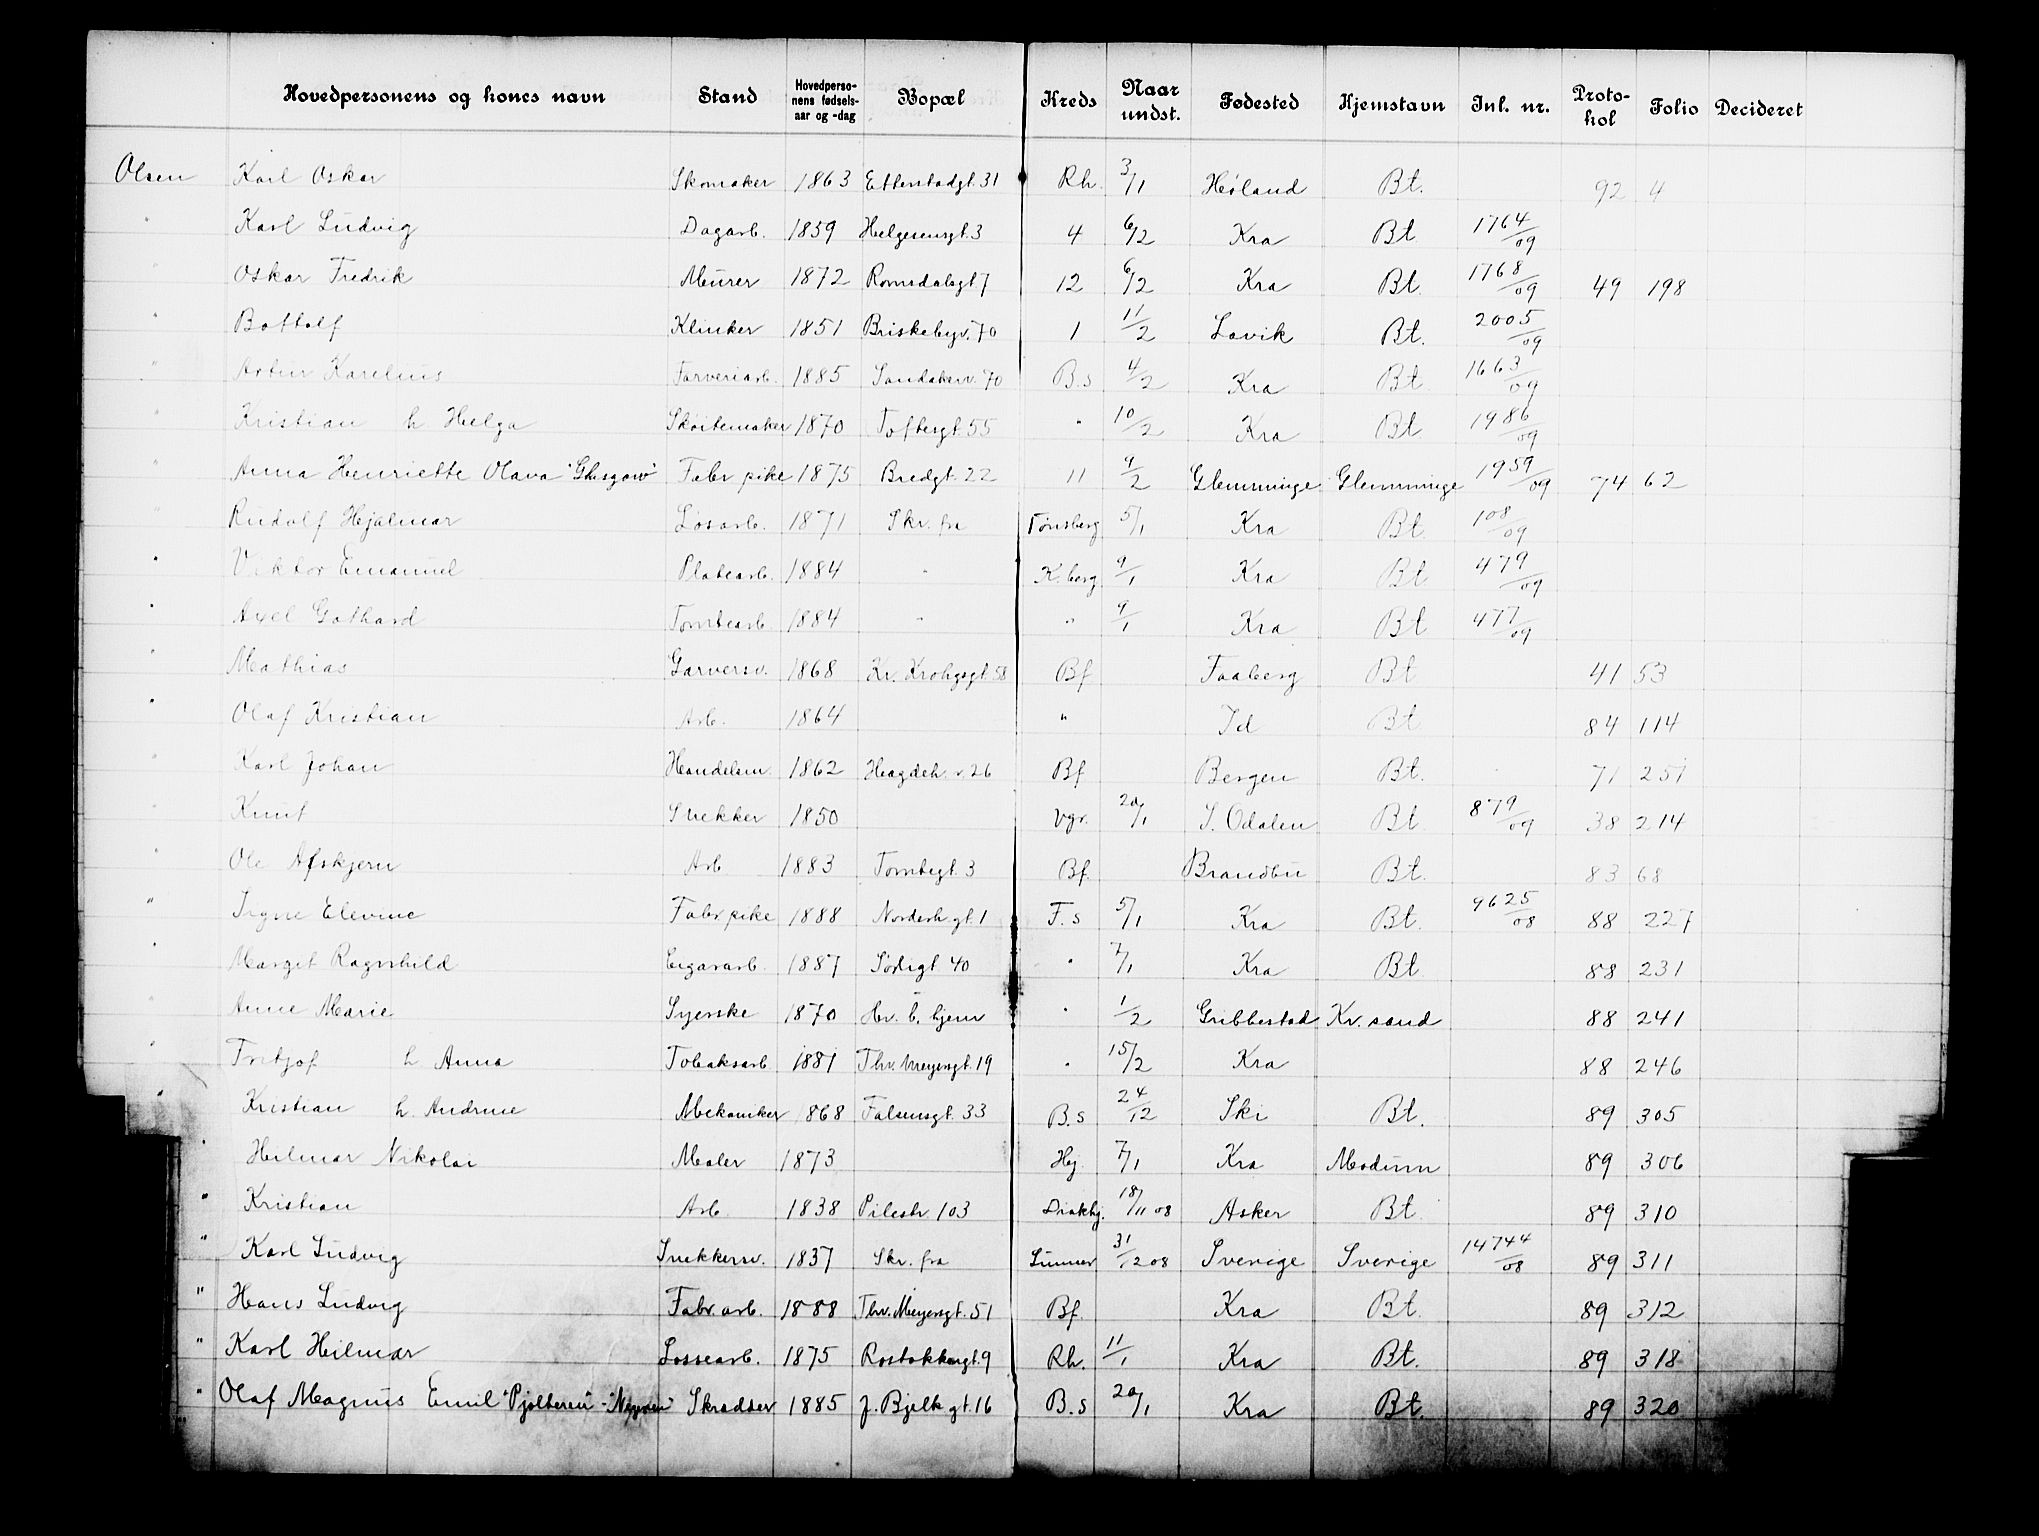 Hovedpersonens og kones navn Stand Hovedpersonens fødselsaar og -dag Bopæl Kreds Naar undst. Fødested Hjemstavn Inl. nr. Protokol Folio Decideret
Olsen Karl Oskar Skomaker 1863 Etterstadgt. 31 Rh. 3/1 Høland Bt. 92 4
" Karl Ludvig Dagarb. 1859 Helgesensgt. 3 4 6/2 Kra Bt 1764/09
" Oskar Fredrik Murer 1872 Romsdalsgt 7 12 6/2 Kra Bt. 1768/09 49 198
" Bottolf Klinker 1851 Briskebyv. 70 1 11/2 Lavik Bt. 2005/09
" Artur Karelius Farveriarb. 1885 Sandakerv. 70 B.s 4/2 Kra Bt 1663/09
" Kristian h Helga Skøitemaker 1870 Toftesgt. 55 " 10/2 Kra Bt 1986/09
" Anna Henriette Olava "Glasgow" Fabr pike 1875 Bredgt. 22 11 9/2 Glemminge Glemminge 1959/09 74 62
" Rudolf Hjalmar Løsarb. 1871 Skr. fra Tønsberg 5/1 Kra Bt. 108/09
" Viktor Emanuel Platearb. 1884 " K.berg 9/1 Kra Bt 479/09
" Axel Gothard Tomtearb. 1884 " " 9/1 Kra Bt 477/09
" Mathias Garversv. 1868 Kr. Krohgsgt. 58 Bf Faaberg Bt 41 53
" Olaf Kristian Arb. 1864 " Id Bt 84 114
" Karl Johan Handelsm. 1862 Hægdeh. v. 26 Bf Bergen Bt. 71 251
" Knut Snekker 1850 Vgr. 20/1 S. Odalen Bt 879/09 38 214
" Ole Afskjern Arb 1883 Tomtegt. 3 Bf. Brandbu Bt. 83 68
" Signe Elevine Fabr pike 1888 Norderh. gt. 1 F.s 5/1 Kra Bt. 9625/08 88 227
" Margit Ragnhild Cigararb. 1887 Sørligt 40 " 7/1 Kra Bt 88 231
" Anne Marie Syerske 1870 Hv. b. hjem " 1/2 Gribbestad Kr. sand 88 241
" Fritjof h Anna Tobaksarb 1881 Thv. Meyersgt. 19 " 15/2 Kra 88 246
" Kristian h. Andrine Mekaniker 1868 Falsensgt. 33 B.s 24/12 Ski Bt. 89 305
" Hilmar Nikolai Maler 1873 Hej. 7/1 Kra Modum 89 306
" Kristian Arb. 1838 Pilestr. 103 Diakhj. 18/11 08 Asker Bt. 89 310
" Karl Ludvig Snekkersv. 1837 Skr. fra Lunner 31/12 08 Sverige Sverige 14744/08 89 311
" Hans Ludvig Fabr. arb. 1888 Thv. Meyersgt. 51 Bf. Kra Bt. 89 312
" Karl Hilmar Lossearb. 1875 Rostokkergt. 9 Rh. 11/1 Kra Bt. 89 318
" Olaf Magnus Emil "Pjolteren" - Skrædder 1885 J. Bjelk gt. 16 B.s 20/1 Kra Bt. 89 320